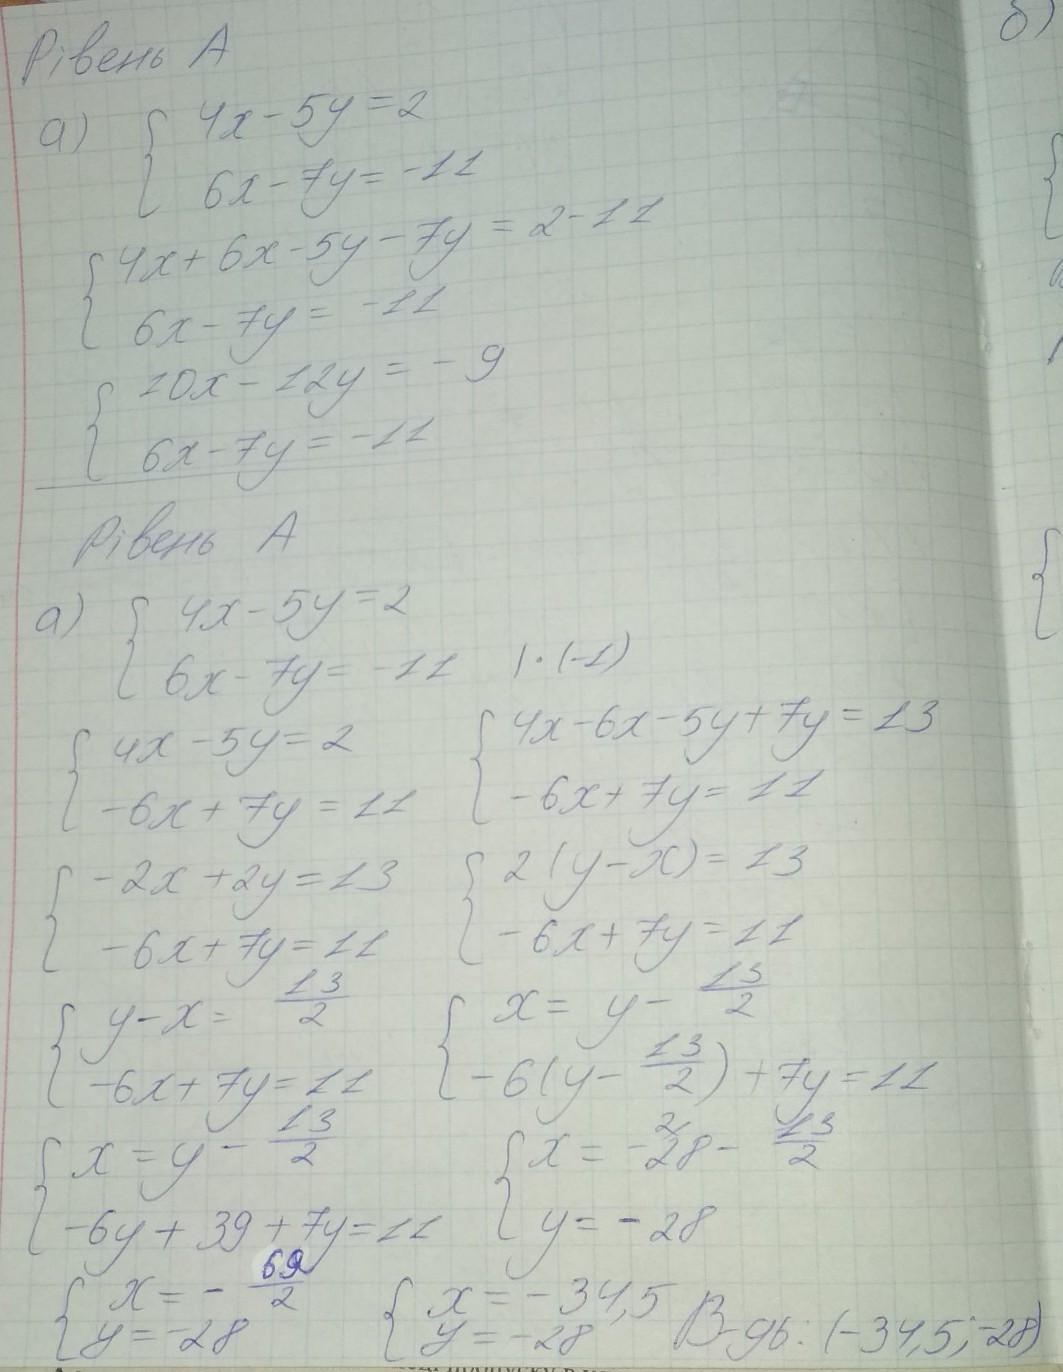 Рівень А
а) { 4x - 5y = 2
6x - 7y = -11
{ 4x + 6x - 5y - 7y = 2 - 11
6x - 7y = -11
{ 10x - 12y = - 9
6x - 7y = -11
Рівень А
а) { 4x - 5y = 2
6x - 7y = -11 | · (-1)
{ 4x - 5y = 2
-6x + 7y = 11
{ 4x - 6x - 5y + 7y = 13
-6x + 7y = 11
{ -2x + 2y = 13
-6x + 7y = 11
{ 2(y - x) = 13
-6x + 7y = 11
{ y - x = 13/2
-6x + 7y = 11
{ x = y - 13/2
-6(y - 13/2) + 7y = 11
{ x = y - 13/2
-6y + 39 + 7y = 11
{ x = -28 - 13/2
y = -28
{ x = - 69/2
y = -28
{ x = -34,5
y = -28
В-дь: (-34,5; -28)
б)